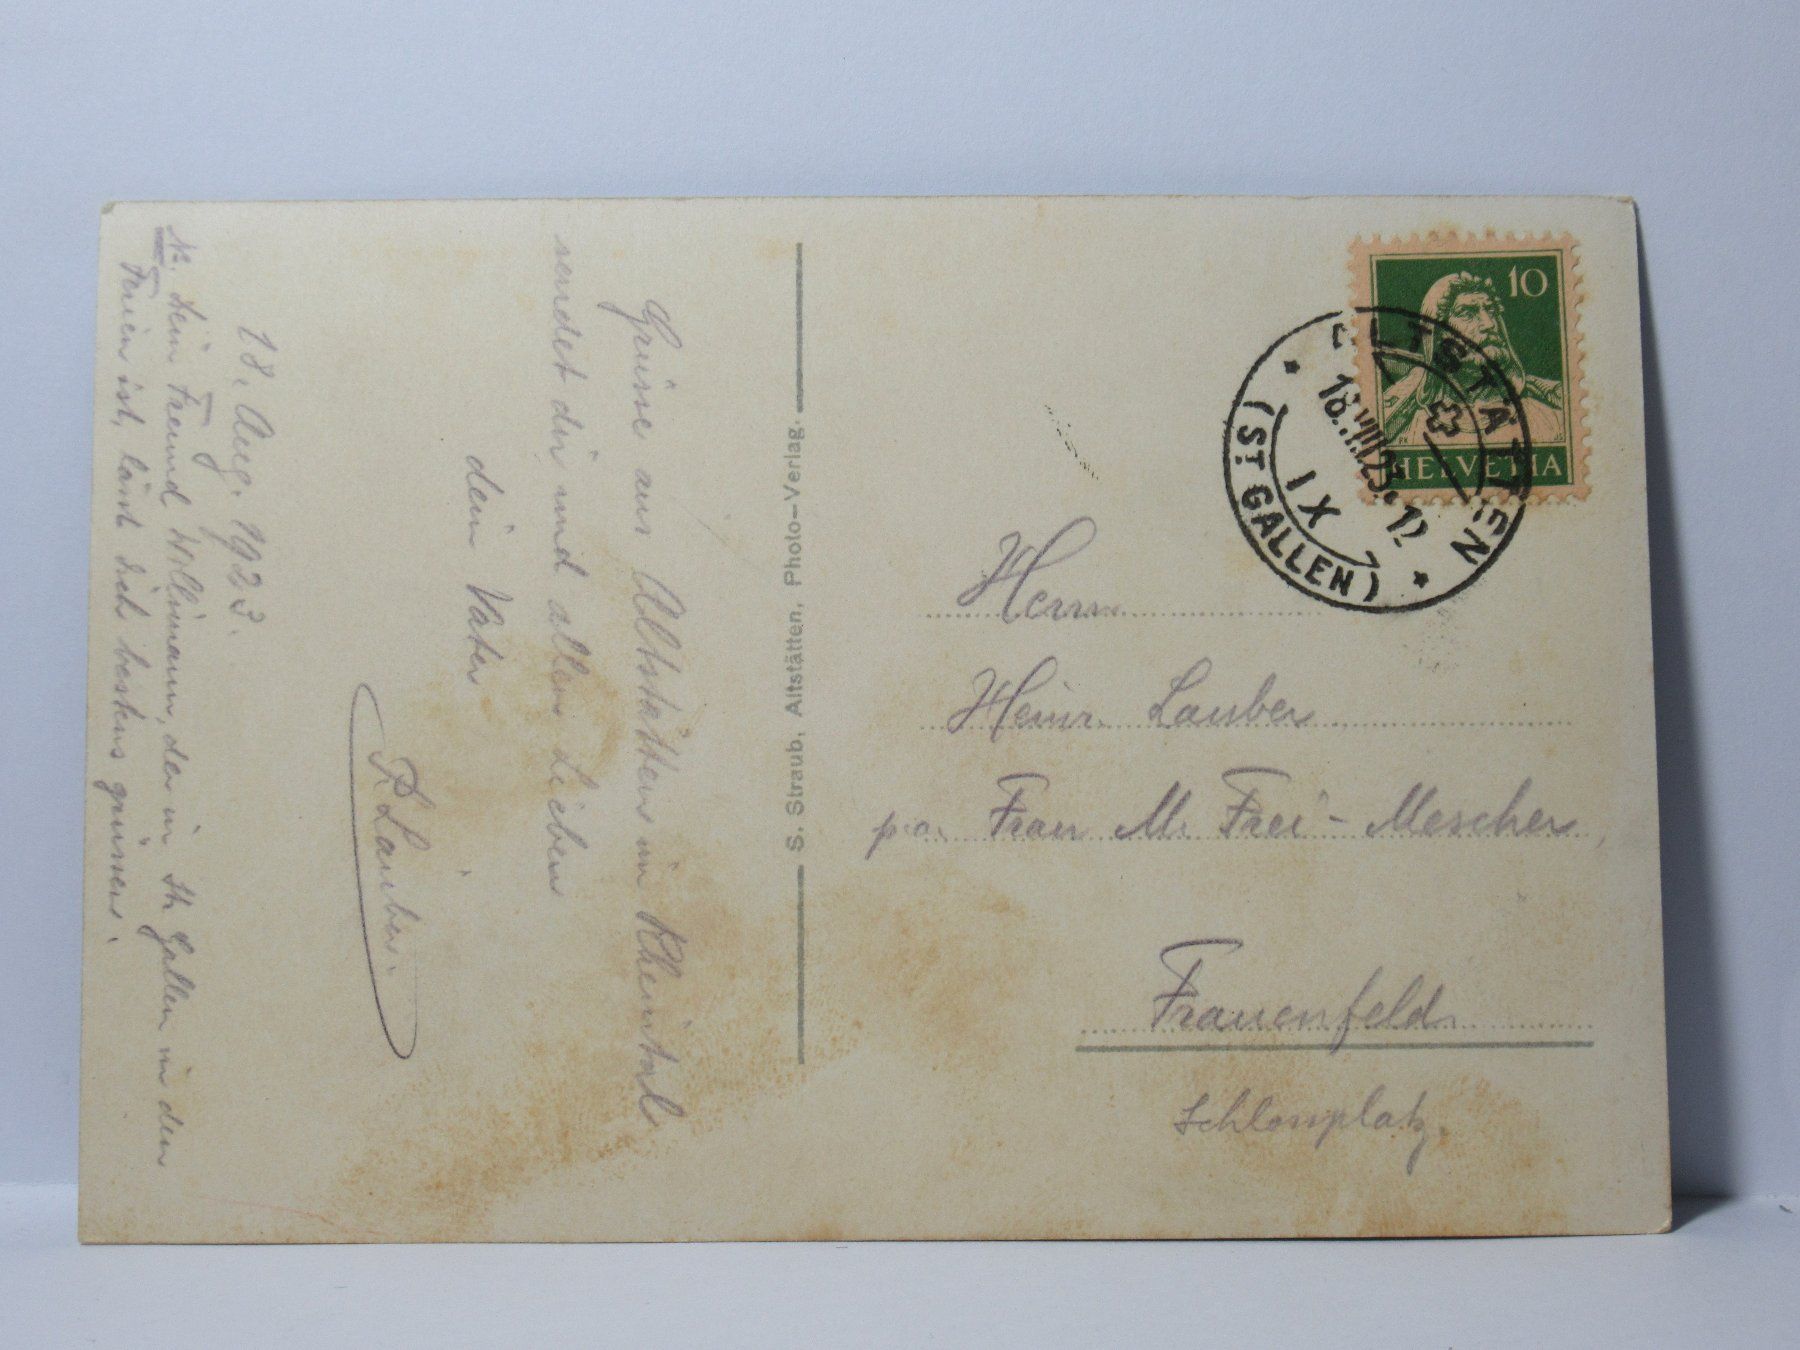 Grüsse aus Altstätten im Rheintal
sendet dir und allen Lieben
dein Vater
R. Lauber.
18. Aug. 1923.
NB. Dein Freund Wollimann, der in St. Gallen in den
Ferien ist, lässt dich bestens grüssen.
S. Straub, Altstätten, Photo-Verlag.
10
HELVETIA
ALTSTÄTTEN
18.VIII.23. 12
IX
(ST GALLEN)
Herrn
Heinr. Lauber
p.a. Frau M. Frei-Mescher,
Frauenfeld.
Schlossplatz.